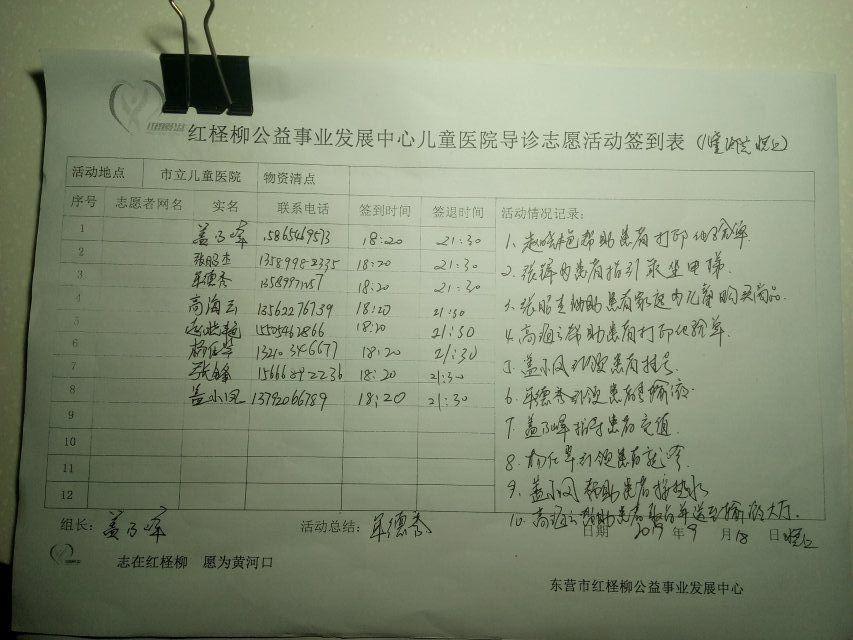 红柽柳公益事业发展中心儿童医院导诊志愿活动签到表
活动地点 市立儿童医院 物资清点
序号 志愿者网名 实名 联系电话 签到时间 签退时间 活动情况记录:
1 盖乃峰 18:20 21:30
2 张昭杰 13589982335 18:20 21:30
3 牟德秀 18:20 21:30
4 高海云 13562276739 18:20 21:30
5 18:20 21:30
6 杨任华 13210346677 18:20 21:30
7 张锋 15666892236 18:20 21:30
8 盖小凤 13792066789 18:20 21:30
9
10
11
12
1、帮助患者打印化验单
2、张锋为患者指引乘坐电梯.
3、张昭杰协助患者家庭为儿童购买商品.
4、高海云帮助患者打印化验单
5、盖小凤引领患者挂号
6、牟德秀引领患者输液
7、盖乃峰指导患者交通
8、杨任华引领患者就诊
9、盖小凤帮助患者接热水
10、高海云帮助患者
组长: 盖乃峰 活动总结: 牟德秀 日期 2019年9月18日晚上
志在红柽柳 愿为黄河口
东营市红柽柳公益事业发展中心